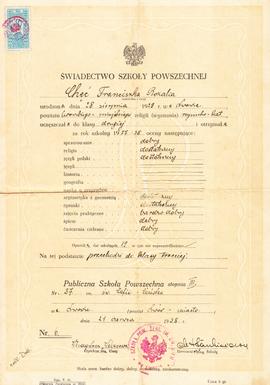 ŚWIADECTWO SZKOŁY POWSZECHNEJ
Chęć Franciszka Rozalia
urodzona dnia 28 sierpnia 1928 w Lwowie
powiatu lwowskiego-miejskiego religii (wyznania) rzymsko-kat.
uczęszczał a do klasy drugiej i otrzymał a
za rok szkolny 1937/38 oceny następujące:
sprawowanie dobry
religia dostateczny
język polski dostateczny
język
historia
geografia
nauka o przyrodzie
arytmetyka z geometrią
rysunki dostateczny
zajęcia praktyczne bardzo dobry
śpiew dobry
ćwiczenia cielesne dobry
Opuścił dni szkolnych 12 w tym nie usprawiedliwionych
Na tej podstawie przechodzi do klasy trzeciej
Publiczna Szkoła Powszechna stopnia III
Nr 27 im. św. Zofii
w Lwowie powiat Lwów - miasto
dnia 21 czerwca 1938
Nr. 6.
Opiekun klasy
Kierownik Szkoły